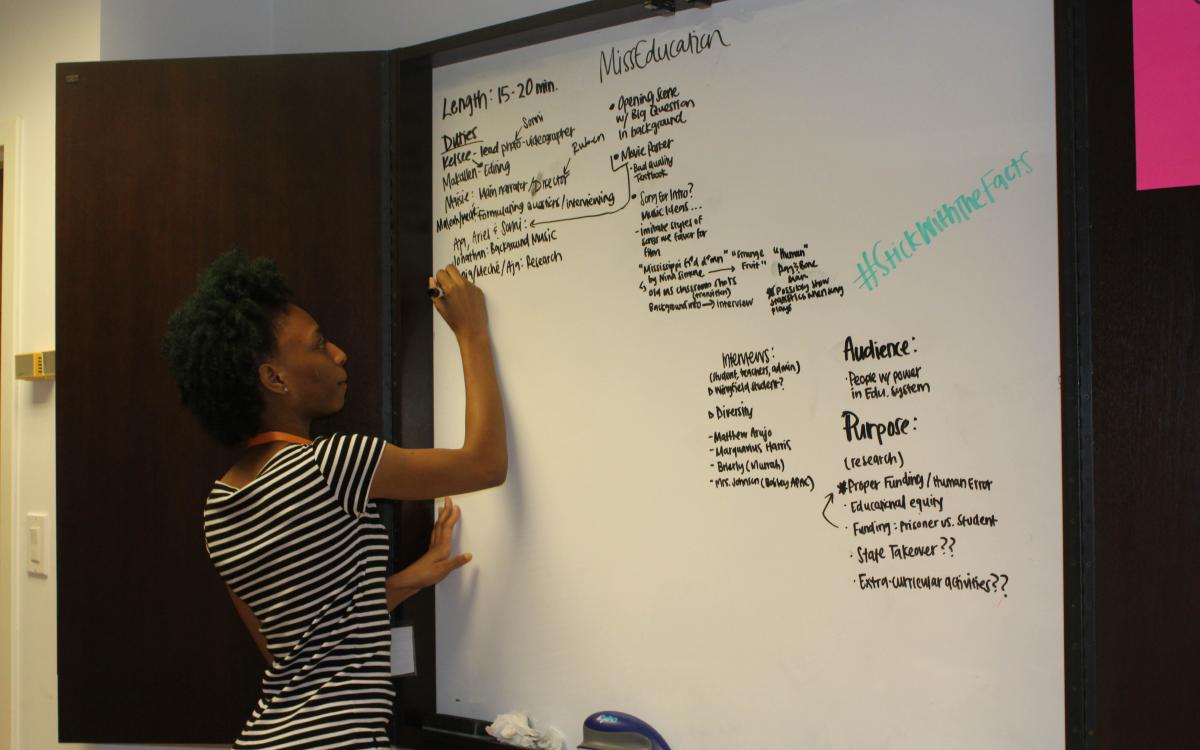 MissEducation
Length: 15-20 min.
Duties
Sonni
Kelsee- lead photo-videographer
Ruben
Makallen- Editing
Maisie: Main narrator/Director
formulating questions/interviewing
Aja, Ariel & Sonni:
Jonathan: Background Music
/Meché/Aja: Research
• Opening Scene
w/ Big Question
in background
• Movie Poster
• Bad Quality
Textbook
• Song for Intro?
Music Ideas...
- imitate styles of
songs we favor for
film
"Mississippi G*d d*mn"
by Nina Simone
"Strange
Fruit"
"Human"
Rag & Bone
Man
* Possibly show
statistics when song
plays
old ms classroom shots
(transition)
Background info → interview
#StickWithTheFacts
Interviews:
(student, teachers, admin)
Wingfield student?
Diversity
- Matthew Araujo
- Marquavius Harris
- Brierly (Murrah)
- Mrs. Johnson (Bailey APAC)
Audience:
• People w/ power
in Edu. System
Purpose:
(research)
* Proper Funding/Human Error
• Educational equity
• Funding: Prisoner vs. Student
• State Takeover??
• Extra-curricular activities??